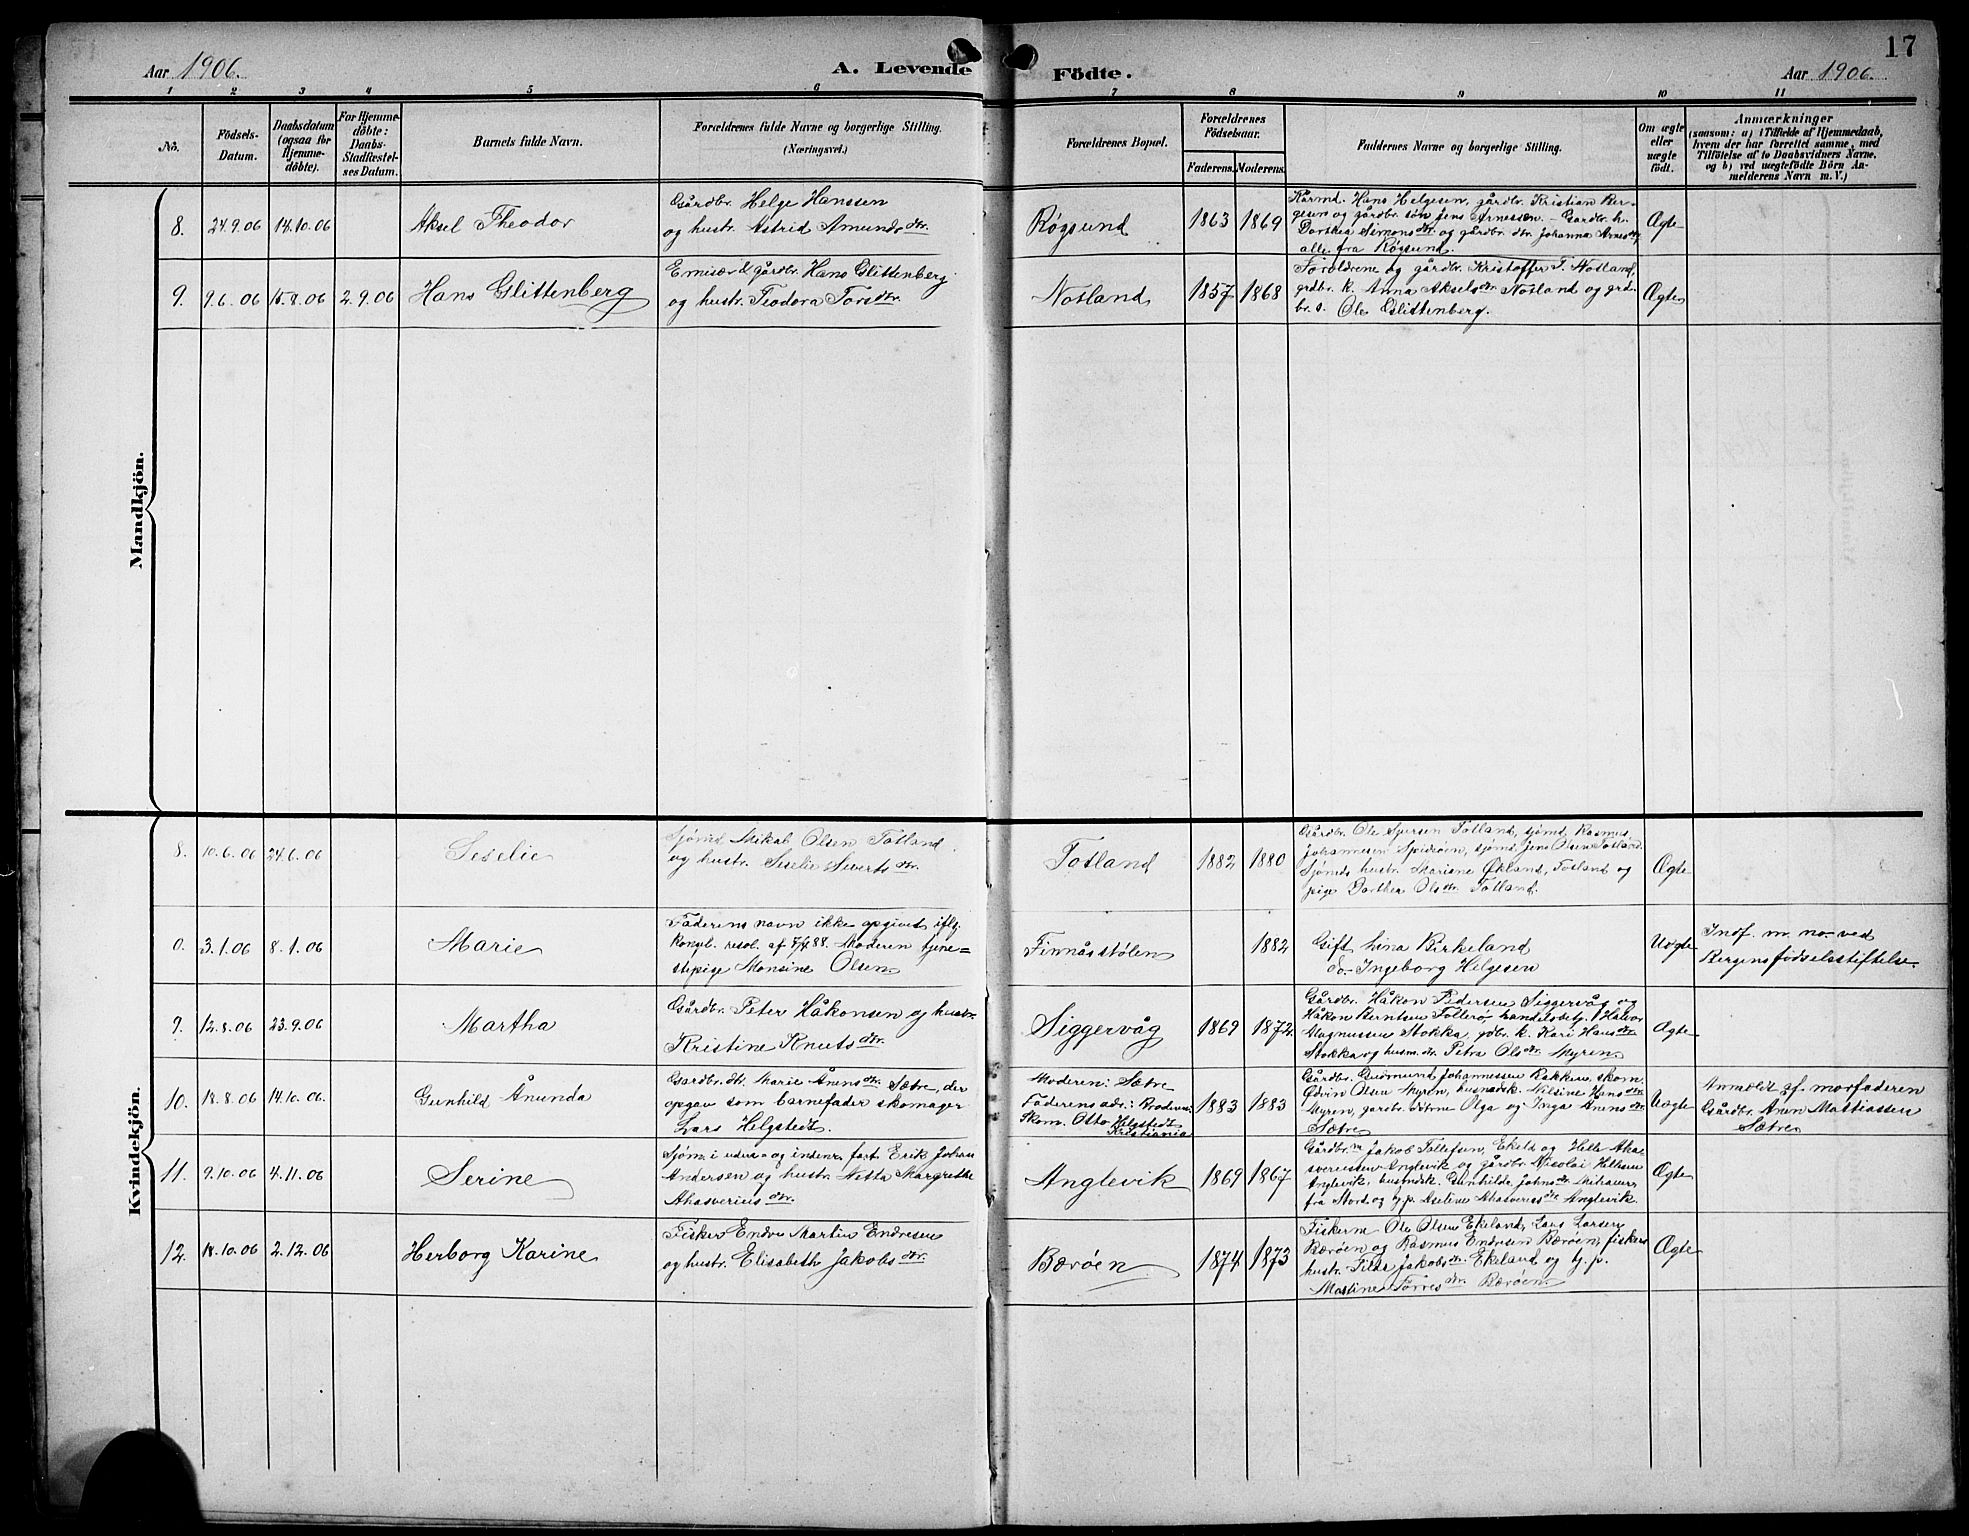 17
Aar 1906.
A. Levende Födte.
Aar 1906.
1 2 3 4 5 6 7 8 9 10 11
No.
Födsels-
Datum.
Daabsdatum
(ogsaa for
Hjemme-
döbte).
For Hjemme-
döbte:
Daabs-
Stadfæstel-
ses Datum.
Barnets fulde Navn.
Forældrenes fulde Navne og borgerlige Stilling.
(Næringsvei.)
Forældrenes Bopæl.
Forældrenes
Födselsaar.
Faderens. Moderens.
Faddernes Navne og borgerlige Stilling.
Om ægte
eller
uægte
födt.
Anmærkninger
(saasom: a) i Tilfælde af Hjemmedaab,
hvem der har forrettet samme, med
Tilföielse af to Daabsvidners Navne,
og b) ved uægtefödte Börn An-
melderens Navn m. V.)
Mandkjön.
8. 24.9.06 14.10.06
Aksel Theodor
Gårdbr. Helge Hanssen
og hustr. Astrid Amundsdtr.
Røgsund
1863 1869
Hans Helgesen, gårdbr. Kristian Ber-
gesen og gårdbr. søn Jens Arnessen. - Gardbr. h.
Dorthea Simonsdtr og gårdbr. dtr. Johanna Arnesdtr,
alle fra Røgsund.
Ægte
9. 9.6.06 15.8.06 2.9.06
Hans Glittenberg
Emisær & gårdbr. Hans Glittenberg
og hustr. Teodora Toresdtr.
Notland
1857 1868
Forældrene og gårdbr. Kristoffer T. Notland,
grdbr. k. Anna Akselsdtr Notland og grd-
br. s. Ole Glittenberg.
Ægte
Kvindekjön.
8. 10.6.06 24.6.06
Seselie
Sjømd. Mikal Olsen Totland
og hustr. Seselie Sivertsdtr.
Totland
1882 1880
Gårdbr. Ole Totland, sjømd. Rasmus
Johannesen Spidsöen, sjømd. Jens Olsen Totland.
Sjømds hustr. Mariane Økland, Totland og
pige Dorthea Olsdtr. Totland.
Ægte
0. 3.1.06 8.1.06
Marie
Faderens navn ikke opgivet iflg.
Kongl. resol. af Moderen tjene-
stepige Monsine Olsen
Finnåsstølen
1882
Gift Lina Birkeland
do- Ingeborg Helgesen
Uægte
Indf. m. no. ved
Bergens fødselsstiftelse.
9. 12.8.06 23.9.06
Martha
Gårdbr. Peter Håkonsen og hustr.
Kristine Knutsdtr.
Siggervåg
1869 1872
Gårdbr. Håkon Pedersen Siggervåg og
Håkon Berntsen Follerø, handelsbetj. Halvor
Magnussen Stokka, gdbr. k. Kari Hansdtr
Stokka og husm. dtr. Petra Olsdtr Myren
Ægte
10. 18.8.06 14.10.06.
Gunhild Ånunda
Gardbr. dtr. Marie Ånensdtr. Sætre, der
opgav som barnefader skomager
Lars Helgstedt.
Moderen: Sætre
Faderens adr.: Broderen
Skom. Otto Helgstedt
Kristiania
1883 1883
Gårdbr. Gudmund Johannessen Bakken, skom.
Edvin Olsen Myren, Nilsine Hansdtr
Myren, gardbr. døtrne Olga og Inga Anensdtr
Sætre
Uægte
Anmeldt af morfaderen
Gårdbr. Anen Mattiassen
Sætre
11. 9.10.06 4.11.06
Serine
Sjøm. i udenr- og indenr. fart Erik Johan
Andersen og hustr. Netta Margrethe
Ahasveriusdtr.
Anglevik
1869 1867
Gårdbr. Jakob Tollefsen, Ekeld og Helle Aha-
sveriussen Anglevik og gårdbr. Nicolai Hillesen
Anglevik, Gunhilda Johnsdtr
fra Stord og tj. p. Aseline Ahasveriusdtr Anglevik.
Ægte
12. 18.10.06 2.12.06
Herborg Karine
Fisker Endre Martin Endresen
og hustr. Elisabeth Jakobsdtr.
Bærøen
1874 1873
Fiskerm. Ole Olsen Ekeland, Lars Larsen
Bærøen og Rasmus Endresen Bærøen, fiskers
hustr. Jakobsdtr. Ekeland og tj. p.
Martine Tørresdtr. Bærøen
Ægte